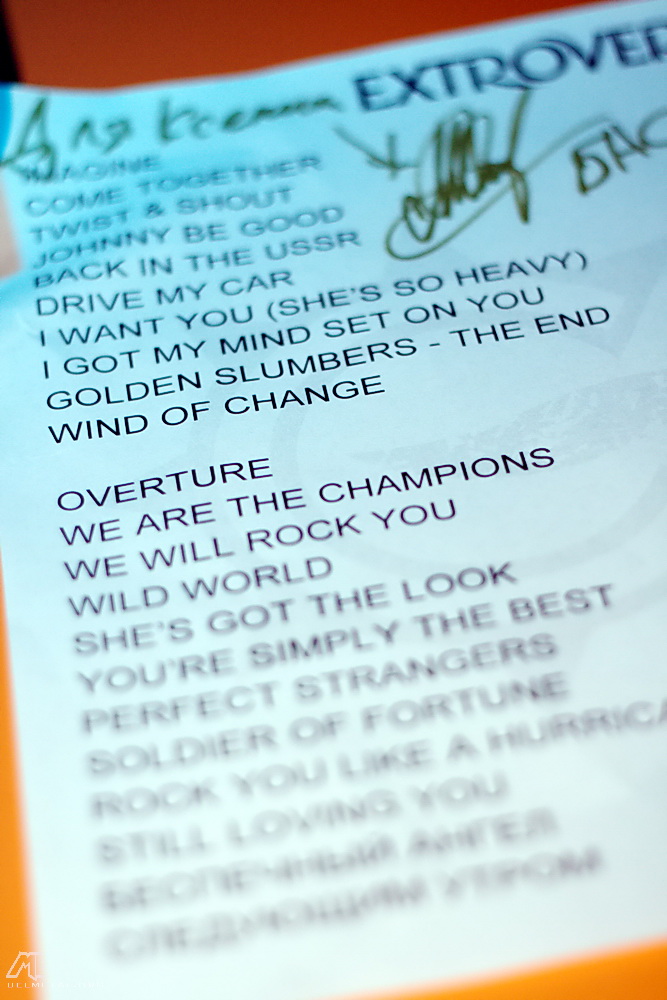 EXTROVER
Для Ксении
БАС
IMAGINE
COME TOGETHER
TWIST & SHOUT
JOHNNY BE GOOD
BACK IN THE USSR
DRIVE MY CAR
I WANT YOU (SHE'S SO HEAVY)
I GOT MY MIND SET ON YOU
GOLDEN SLUMBERS - THE END
WIND OF CHANGE
OVERTURE
WE ARE THE CHAMPIONS
WE WILL ROCK YOU
WILD WORLD
SHE'S GOT THE LOOK
YOU'RE SIMPLY THE BEST
PERFECT STRANGERS
SOLDIER OF FORTUNE
ROCK YOU LIKE A HURRICA
STILL LOVING YOU
БЕСПЕЧНЫЙ АНГЕЛ
СЛЕДУЮЩИМ УТРОМ